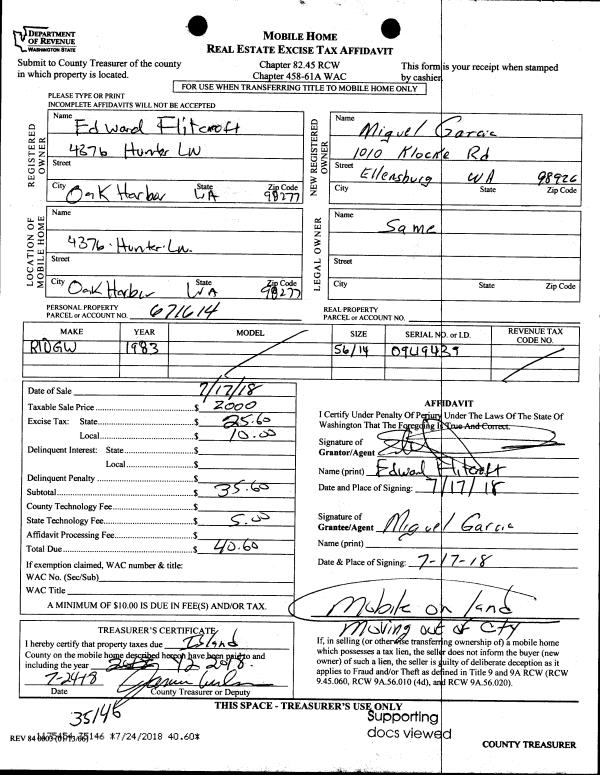 DEPARTMENT
OF REVENUE
WASHINGTON STATE
MOBILE HOME
REAL ESTATE EXCISE TAX AFFIDAVIT
Submit to County Treasurer of the county
in which property is located.
Chapter 82.45 RCW
Chapter 458-61A WAC
This form is your receipt when stamped
by cashier.
FOR USE WHEN TRANSFERRING TITLE TO MOBILE HOME ONLY
PLEASE TYPE OR PRINT
INCOMPLETE AFFIDAVITS WILL NOT BE ACCEPTED
REGISTERED
OWNER
Name
Edward Flitcroft
4376 Hunter LN
Street
City State Zip Code
Oak Harbor WA 98277
NEW REGISTERED
OWNER
Name
Miguel Garcia
1010 Klocke Rd
Street
Ellensburg WA 98926
City State Zip Code
LOCATION OF
MOBILE HOME
Name
4376 Hunter Ln.
Street
City State Zip Code
Oak Harbor WA 98277
LEGAL OWNER
Name
Same
Street
City State Zip Code
PERSONAL PROPERTY
PARCEL or ACCOUNT NO. 671614
REAL PROPERTY
PARCEL or ACCOUNT NO.
MAKE YEAR MODEL SIZE SERIAL NO. or I.D. REVENUE TAX
CODE NO.
RIDGW 1983 56/14 09U9439
Date of Sale 7/17/18
Taxable Sale Price $ 2000
Excise Tax: State $ 25.60
Local $ 10.00
Delinquent Interest: State $
Local $
Delinquent Penalty $
Subtotal $ 35.60
County Technology Fee $
State Technology Fee $ 5.00
Affidavit Processing Fee $
Total Due $ 40.60
If exemption claimed, WAC number & title:
WAC No. (Sec/Sub)
WAC Title
A MINIMUM OF $10.00 IS DUE IN FEE(S) AND/OR TAX.
AFFIDAVIT
I Certify Under Penalty Of Perjury Under The Laws Of The State Of
Washington That The Foregoing Is True And Correct.
Signature of
Grantor/Agent
Name (print) Edward Flitcroft
Date and Place of Signing: 7/17/18
Signature of
Grantee/Agent Miguel Garcia
Name (print)
Date & Place of Signing: 7-17-18
Mobile on land
Moving out of City
TREASURER'S CERTIFICATE
I hereby certify that property taxes due Island
County on the mobile home described hereon have been paid to and
including the year 2018.
7-24-18
Date County Treasurer or Deputy
If, in selling (or otherwise transferring ownership of) a mobile home
which possesses a tax lien, the seller does not inform the buyer (new
owner) of such a lien, the seller is guilty of deliberate deception as it
applies to Fraud and/or Theft as defined in Title 9 and 9A RCW (RCW
9.45.060, RCW 9A.56.010 (4d), and RCW 9A.56.020).
THIS SPACE - TREASURER'S USE ONLY
35146
Supporting
docs viewed
35146 *7/24/2018 40.60*
COUNTY TREASURER